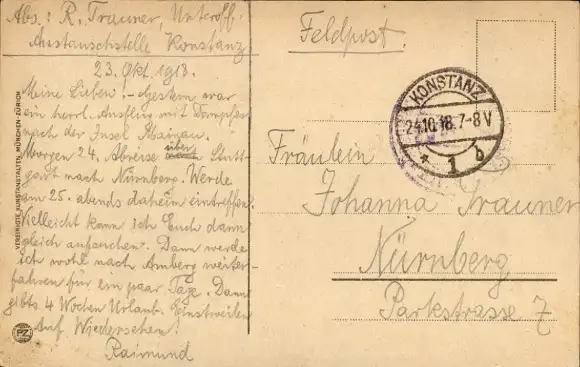 Abs.: R. Trauner, Unteroff.
Austauschstelle Konstanz
23. Okt. 1918.
Meine Lieben! - Gestern war
ein herrl. Ausflug mit Dampfer
nach der Insel Mainau.
Morgen 24. Abreise über Stutt-
gart nach Nürnberg. Werde
am 25. abends daheim eintreffen.
Vielleicht kann ich Euch dann
gleich aufsuchen. Dann werde
ich wohl nach Amberg weiter-
fahren für ein paar Tage. Dann
gibts 4 Wochen Urlaub. Einstweilen
Auf Wiedersehen!
Raimund
VEREINIGTE KUNSTANSTALTEN, MÜNCHEN-ZÜRICH
PZ
Feldpost.
KONSTANZ
24.10.18. 7-8 V
* 1 b
Fräulein
Johanna Trauner
Nürnberg
Parkstrasse 7